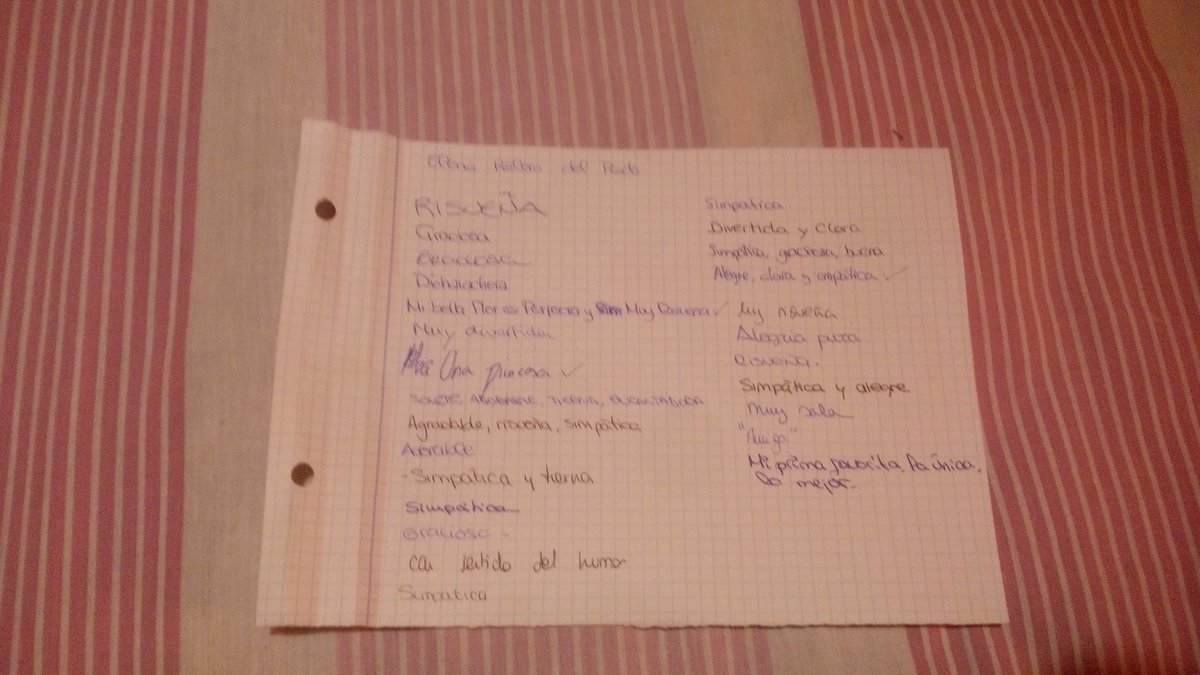 del Prado
RISUEÑA
Graciosa
Graciosa
Dicharachera
Mi bella Flor es Perfecta y Muy Risueña ✓
Muy divertida
Una princesa ✓
ADORABLE, TIERNA, ENCANTADORA
Agradable, risueña, simpática
Adorable
- Simpática y tierna
Simpática
Graciosa -
con sentido del humor
Simpatica
Simpatica
Divertida y clara
Simpática, graciosa, buena
Alegre, clara y empática ✓
Muy risueña
Alegría pura
Risueña.
Simpática y alegre
Muy sala
"Amiga"
Mi prima favorita, la única,
lo mejor.